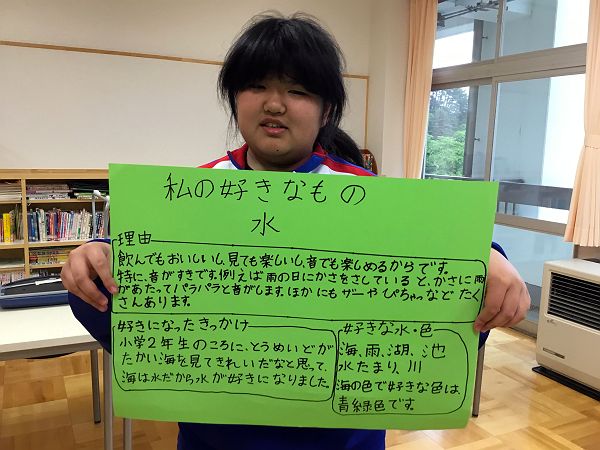 私の好きなもの
水
理由
飲んでもおいしいし、見ても楽しいし、音でも楽しめるからです。
特に、音がすきです。例えば雨の日にかさをさしていると、かさに雨
があたってパラパラと音がします。ほかにもザーやぴちゃっなどたく
さんあります。
好きになったきっかけ
小学2年生のころに、とうめいどが
たかい海を見てきれいだなと思って、
海は水だから水が好きになりました。
好きな水・色
海、雨、湖、池
水たまり、川
海の色で好きな色は、
青緑色です。